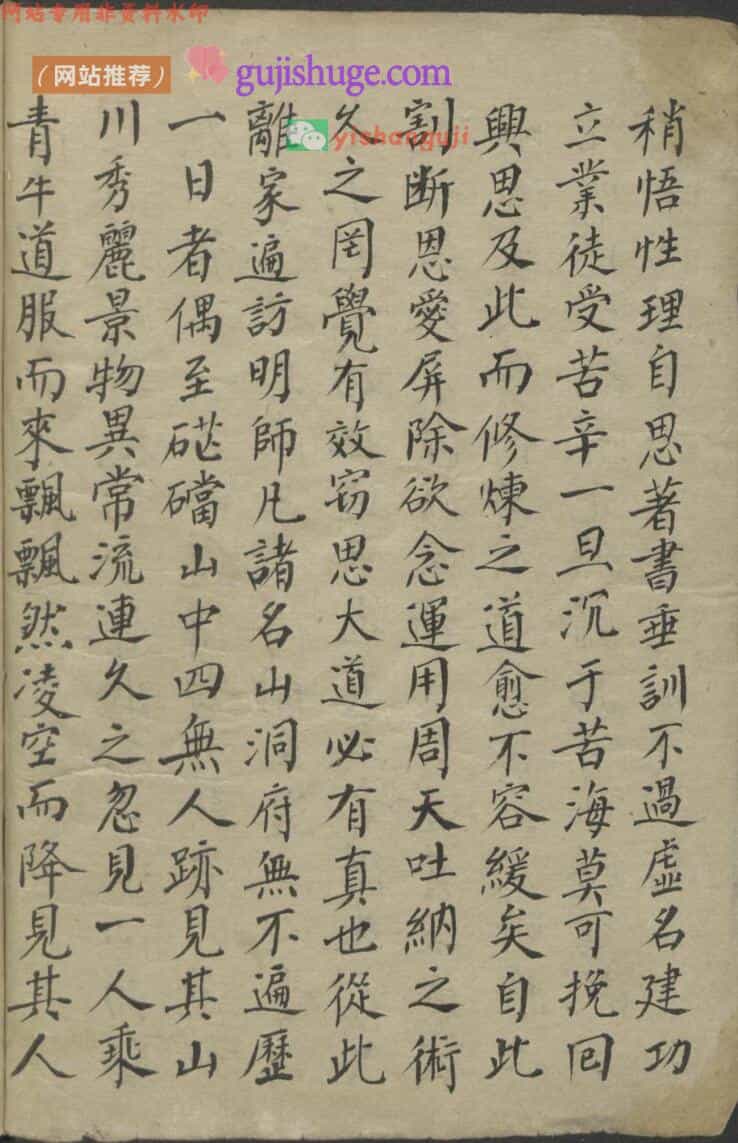 网站专用非资料水印
(网站推荐)
gujishuge.com
yishanguji
稍悟性理自思著書垂訓不過虛名建功
立業徒受苦辛一旦沉于苦海莫可挽回
興思及此而修煉之道愈不容緩矣自此
割斷恩愛屏除欲念運用周天吐納之術
久之罔覺有效窃思大道必有真也從此
離家遍訪明師凡諸名山洞府無不遍歷
一日者偶至礠礑山中四無人跡見其山
川秀麗景物異常流連久之忽見一人乘
青牛道服而來飄飄然凌空而降見其人